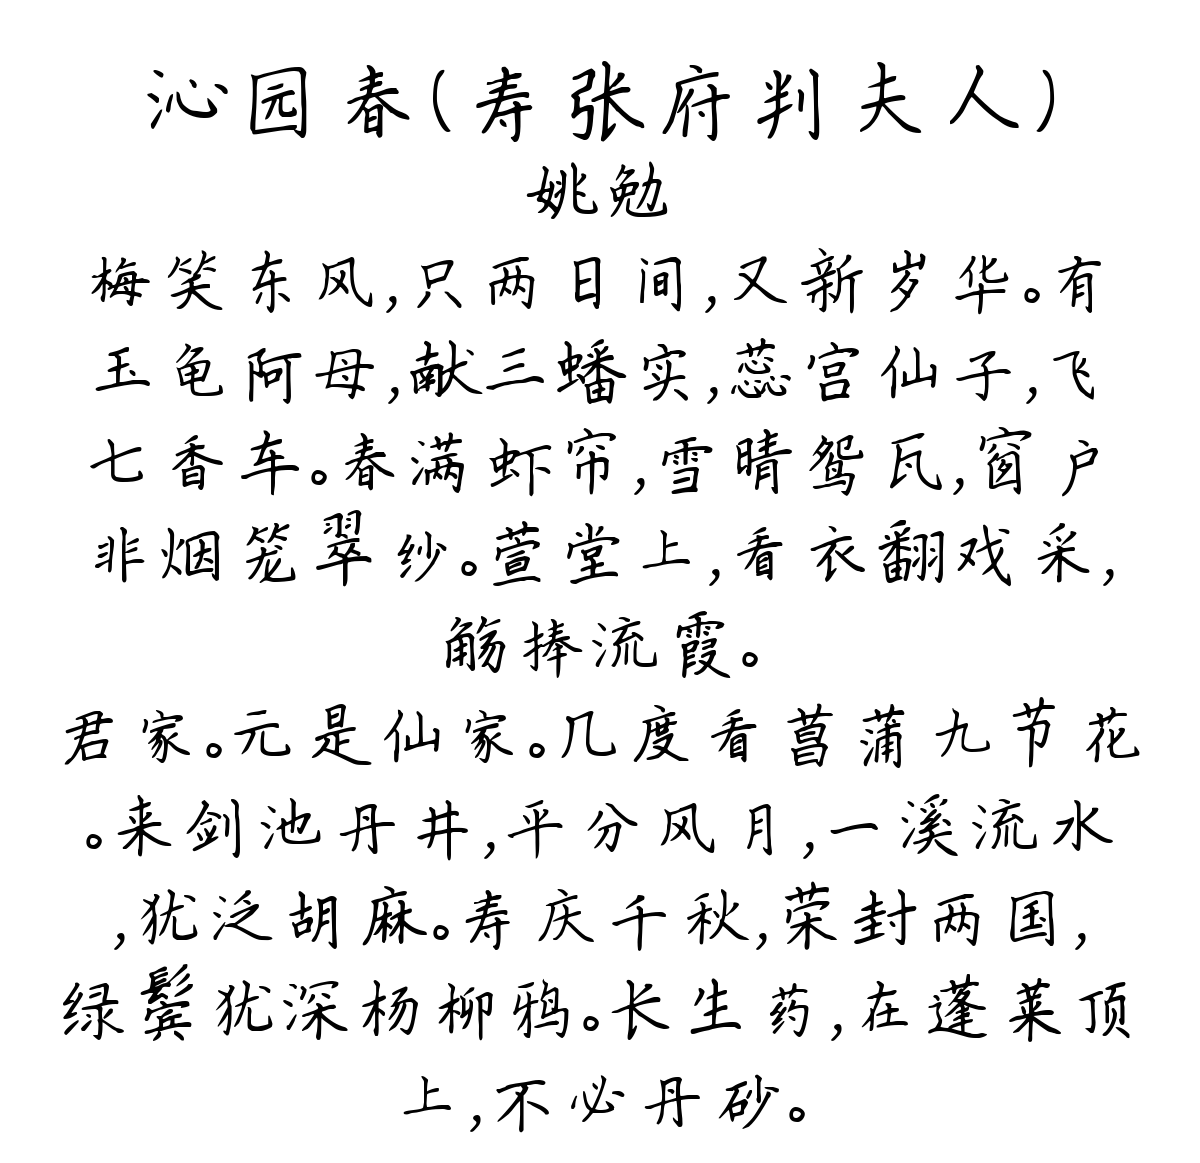 沁园春(寿张府判夫人)
姚勉
梅笑东风,只两日间,又新岁华。有
玉龟阿母,献三蟠实,蕊宫仙子,飞
七香车。春满虾帘,雪晴鸳瓦,窗户
非烟笼翠纱。萱堂上,看衣翻戏采,
觞捧流霞。
君家。元是仙家。几度看菖蒲九节花
。来剑池丹井,平分风月,一溪流水
,犹泛胡麻。寿庆千秋,荣封两国,
绿鬓犹深杨柳鸦。长生药,在蓬莱顶
上,不必丹砂。